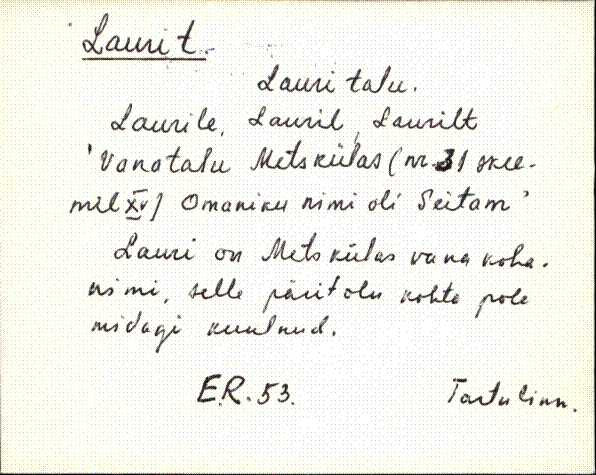 Laurit.
Lauri talu.
Laurile, Lauril, Laurilt
'Vanatalu Metskülas (nr. 31 skee-
mil XV) Omaniku nimi oli Seitam'
Lauri on Metskülas vana koha-
nimi, selle päritolu kohta pole
midagi kuulnud.
E.R. 53. Tartu linn.